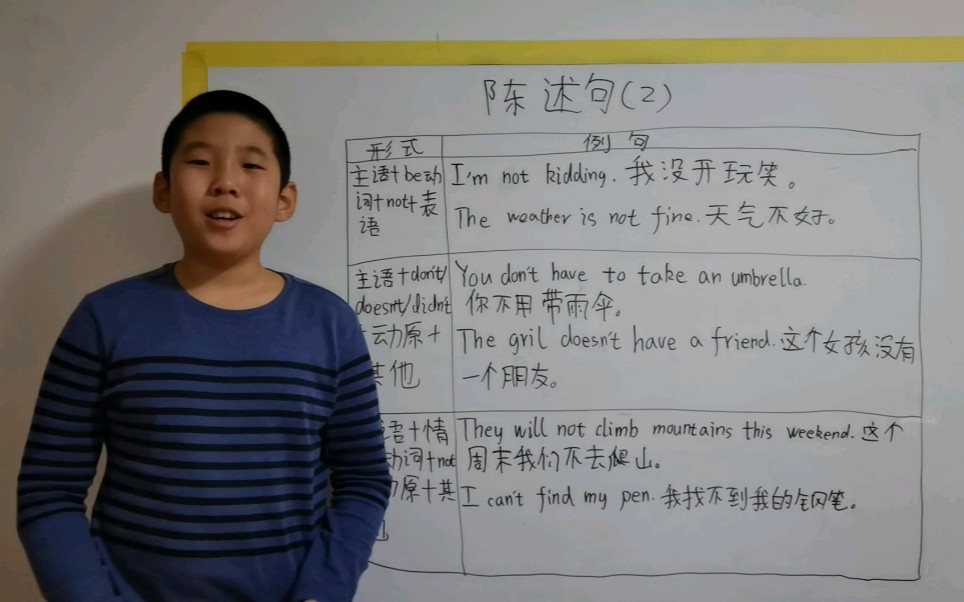 陈述句(2)
形式
例句
主语+be动
词+not+表
语
I'm not kidding. 我没开玩笑。
The weather is not fine. 天气不好。
主语+don't/
doesn't/didn't
动原+
其他
You don't have to take an umbrella.
你不用带雨伞。
The gril doesn't have a friend. 这个女孩没有
一个朋友。
语+情
动词+not
原+其
They will not climb mountains this weekend. 这个
周末我们不去爬山。
I can't find my pen. 我找不到我的钢笔。